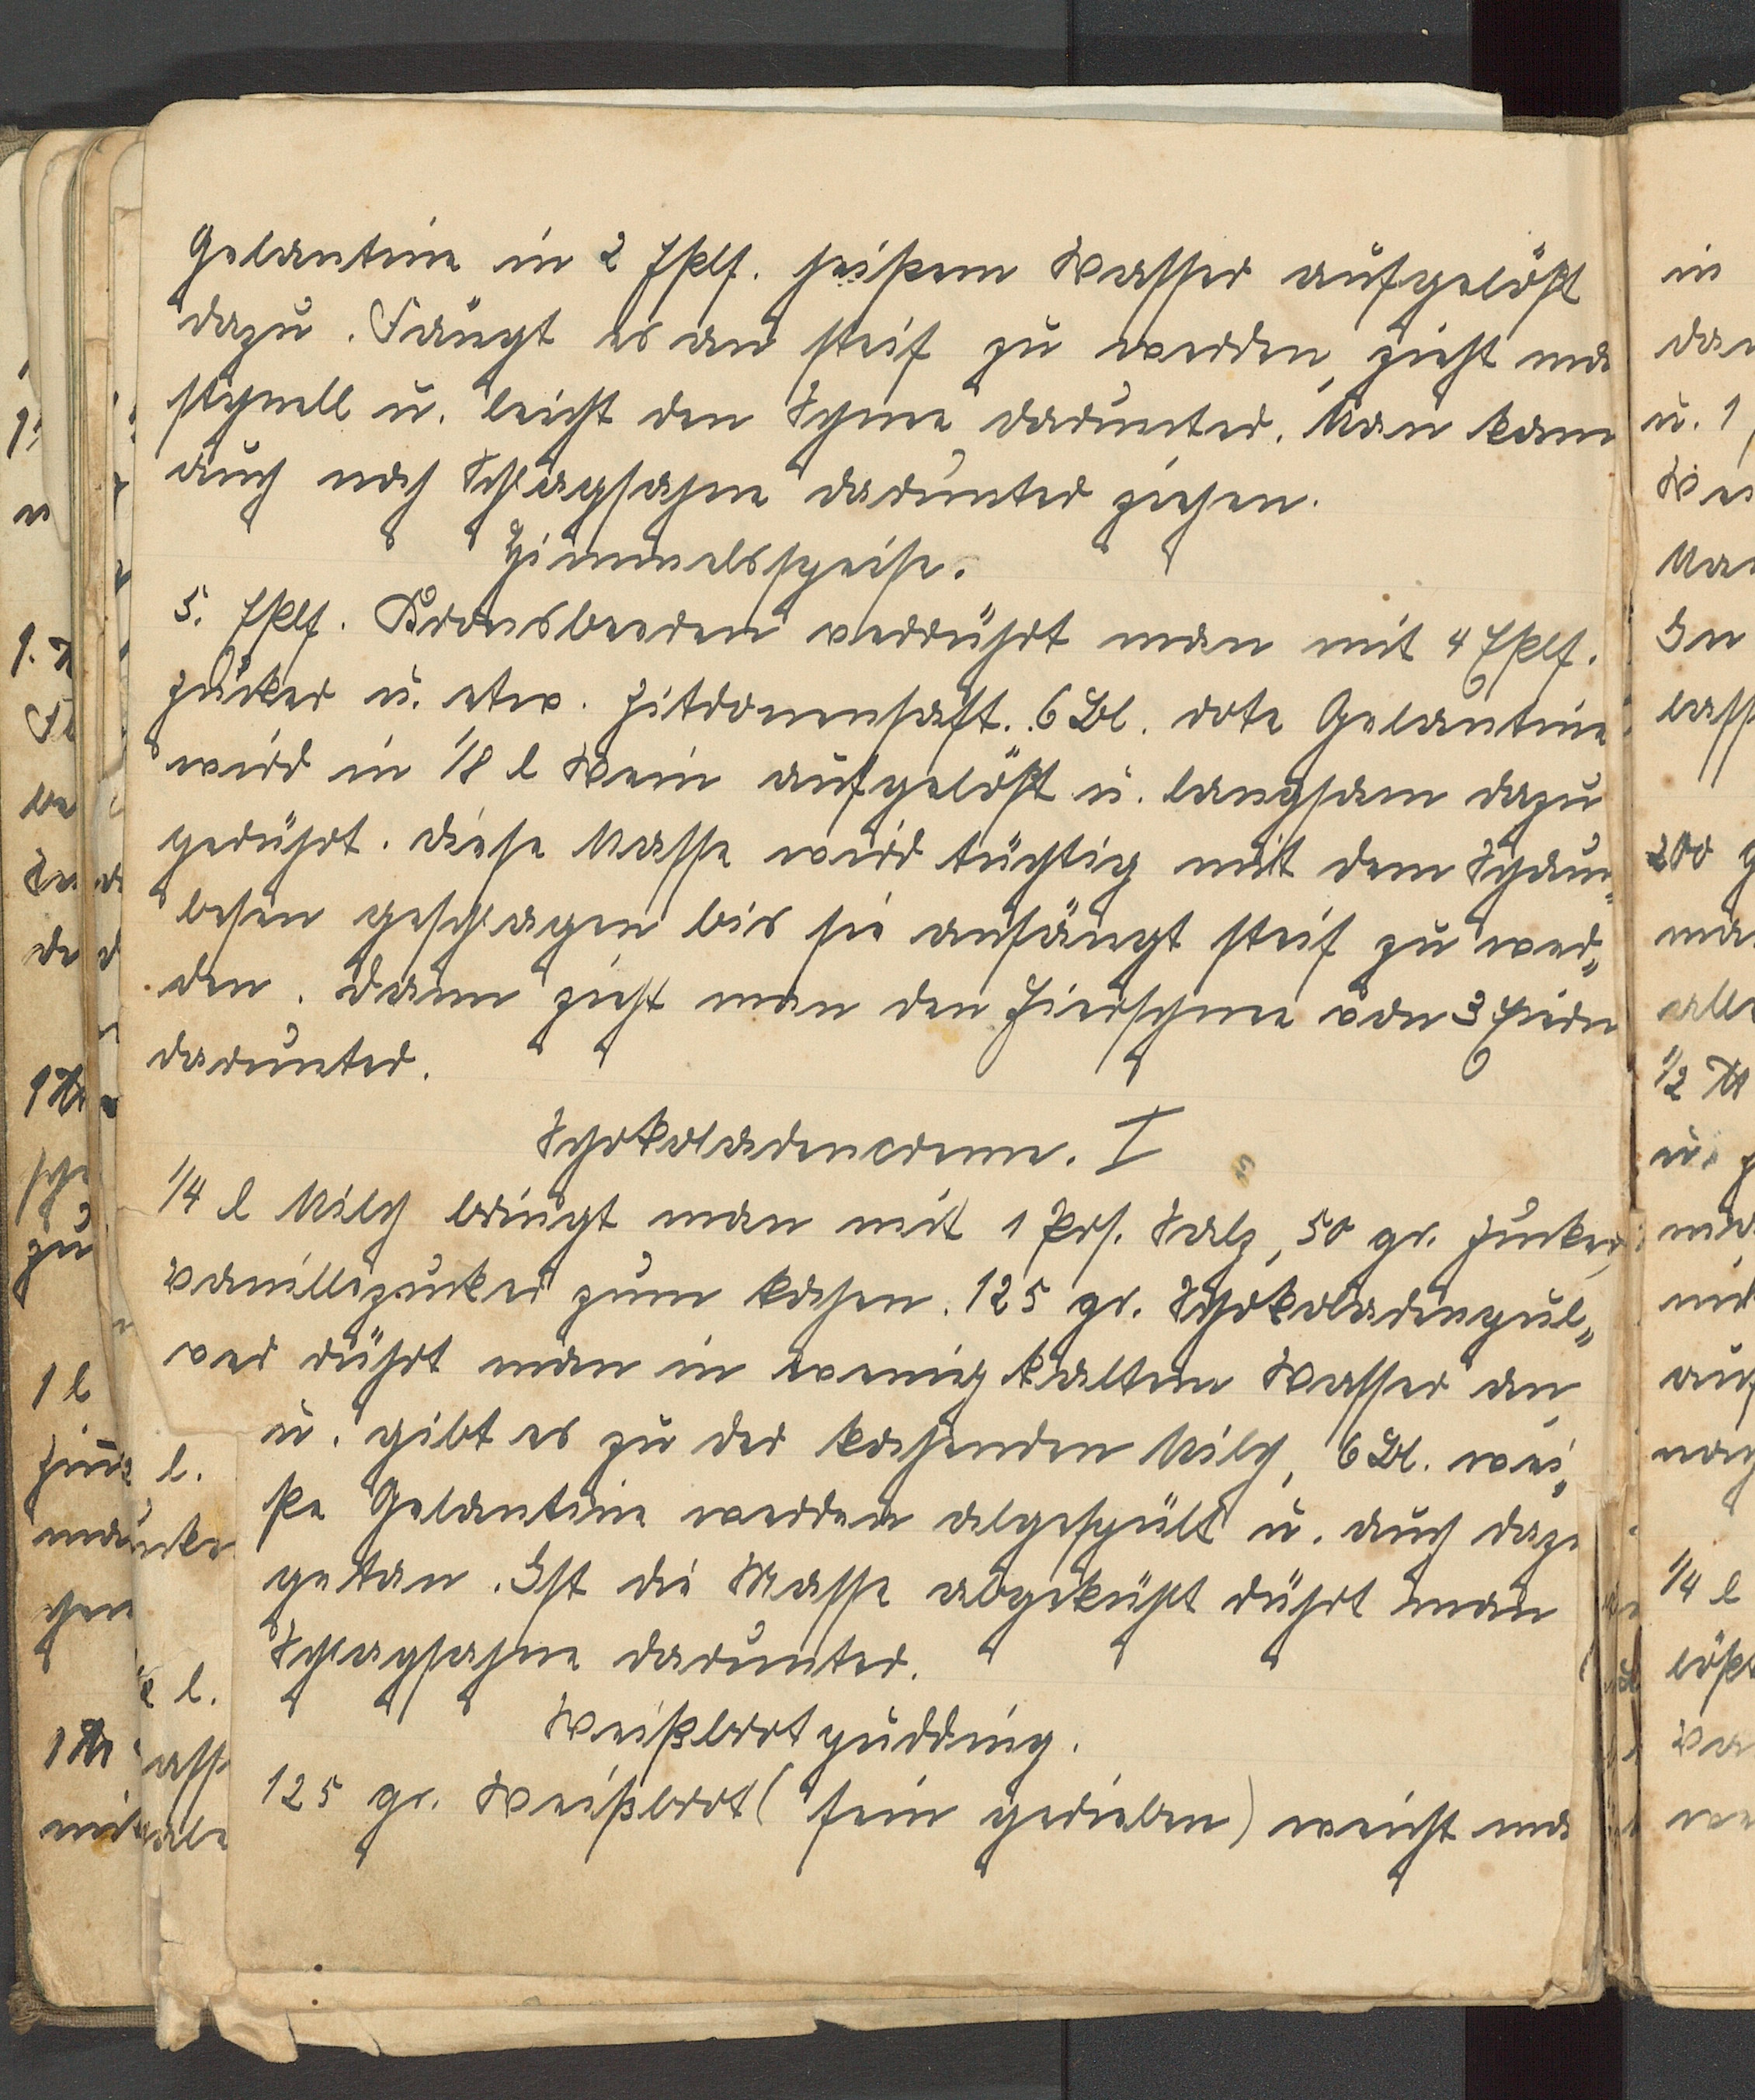 Gelantine in 2 Eßlf. heißem Wasser aufgelößt
dazu. Fängt es an steif zu werden, zieht man
schnell u. leicht den Schnee darunter. Man kann
auch noch Schlagsahne darunter ziehen.
Himmelsspeise.
5. Eßlf. Kronsbeeren verrührt man mit 4 Eßlf.
Zucker u. etw. Zitronensaft. 6 Bl. rote Gelantine
wird in 1/8 l Wein aufgelößt u. langsam dazu
gerührt. Diese Masse wird tüchtig mit dem Schaum„
besen geschlagen bis sie anfängt steif zu wer„
den. Dann zieht man den Eierschnee von 3 Eiern
darunter.
Schokoladencreme. I
1/4 l Milch bringt man mit 1 Prs. Salz, 50 gr. Zucker,
Vanillezucker zum kochen. 125 gr. Schokoladenpul„
ver rührt man in wenig kaltem Wasser an
u. gibt es zu der kochenden Milch, 6 Bl. wei„
ße Gelantine werden abgespült u. auch dazu
getan. Ist die Masse abgekühlt rührt man
Schlagsahne darunter.
Weißbrotpudding.
125 gr. Weißbrot (fein gerieben) weicht man